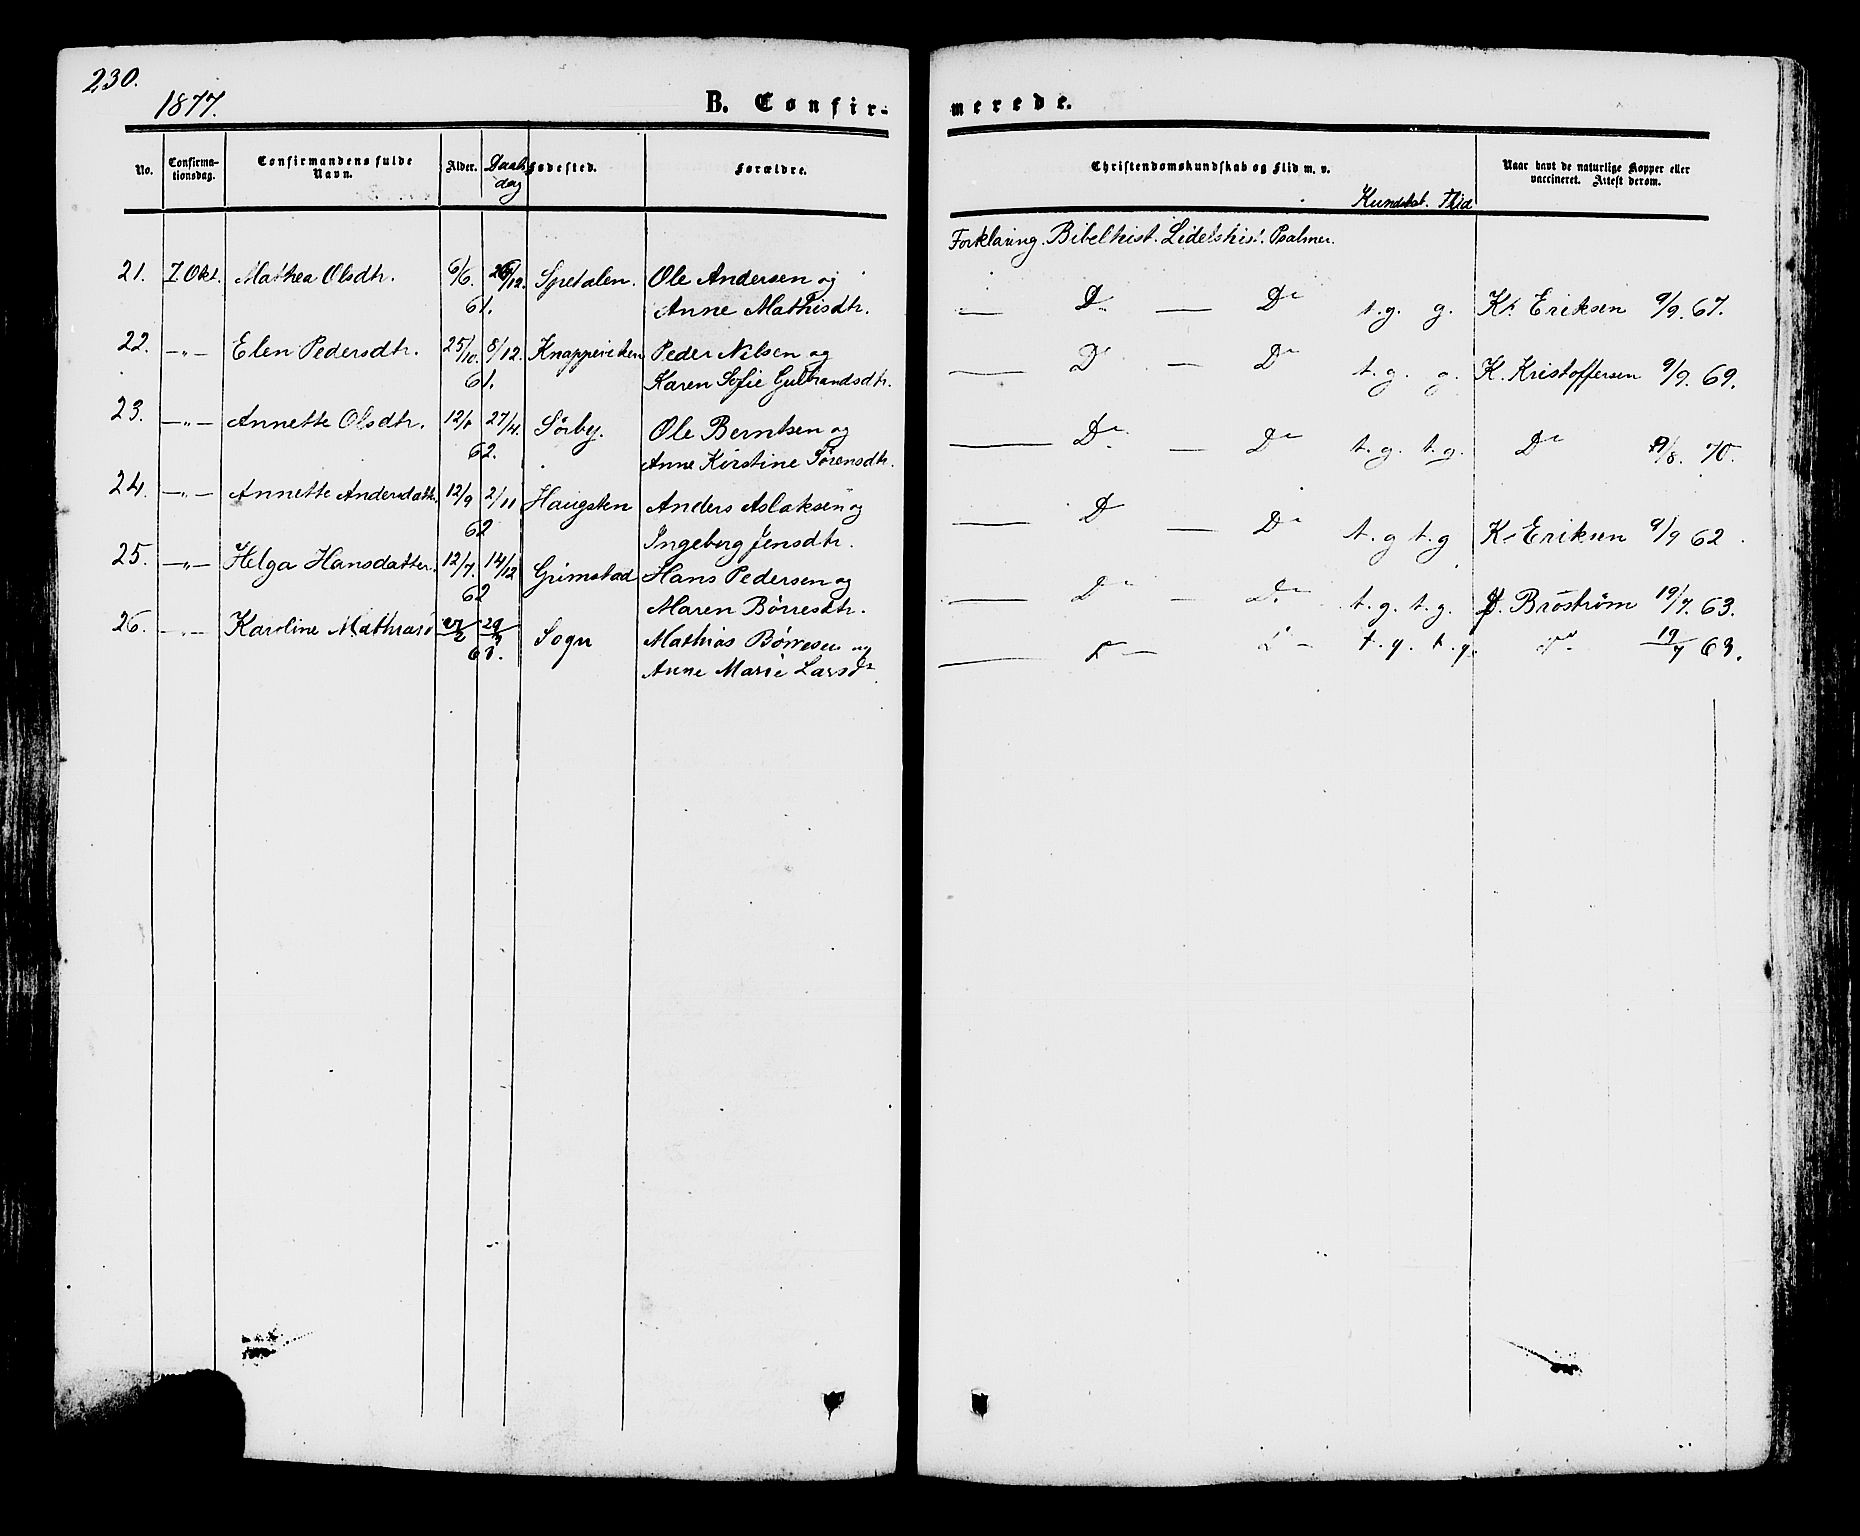 230.
1877.
B. Confir- merede.
No. Confirma-tionsdag. Confirmandens fulde Navn. Alder. Daabsdag Fødested. Forældre. Christendomskundskab og Flid m. v. Kundskab. Flid Naar havt de naturlige Kopper eller vaccineret. Attest derom.
Forklaring. Bibelhist. Lidelshist. Psalmer.
21. 7. Okt. Mathea Olsdtr. 6/6. 26/12. Spetalen. Ole Andersen og
61. Anne Mathisdtr. — Do — Do t.g. g. K. Eriksen 9/9. 67.
22. —"— Elen Pedersdtr. 25/10. 8/12. Peder Nilsen og
61. Karen Sofie Gulbrandsdtr. — Do — Do t.g. g. K. Kristoffersen 9/9. 69.
23. —"— Annette Olsdtr. 27/4. Sörby. Ole Berntsen og
62. Anne Kirstine Sørensdtr. — Do — Do t.g. t.g. Do /8. 70.
24. —"— Annette Andersdattr. 12/9 2/11 Haugsten Anders Aslaksen og
62 Ingeborg Jensdtr. — D — Do t.g t.g K. Eriksen 9/9 62.
25. —"— Helga Hansdatter. 12/7. 14/12 Grimstad Hans Pedersen og
62 Maren Børresdtr. — Do — Do t.g. t.g. Broström 19/7. 63.
26. —"— Karoline Mathiasd 27/2 29/3 Sogn Mathias Børresen og
63. Anne Marie Larsdr. — D — D — t.g. t.g. do 19/7 63.